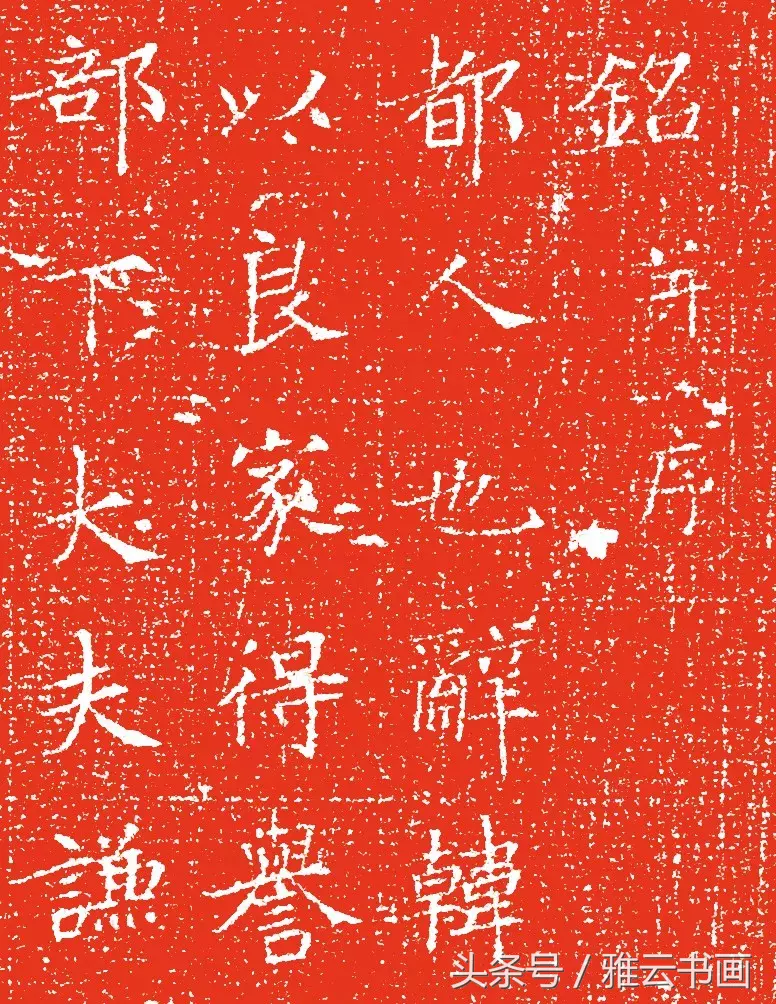 銘并序
都人也辭韓
以良家得譽
部下大夫謙
头条号 / 雅云书画